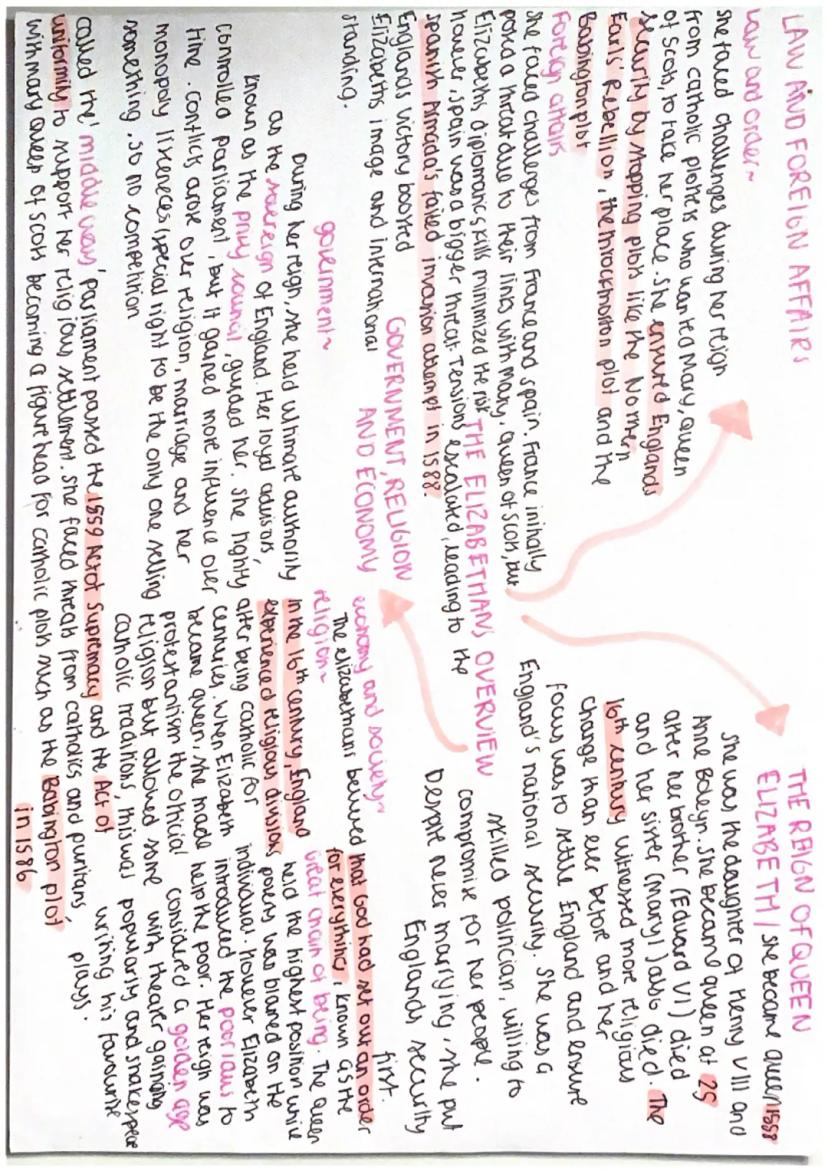 LAW AND FOREIGN AFFAIRS
law and order~
she faced challenges during her reign
from catholic plotters who wanted Mary, queen
of scots, to take her place. She ensured Englands
security by stopping plots like the Northern
Earls' Rebellion, the throckmorton plot and the
Babington plot
Foreign affairs
She faced challenges from France and spain. France initially
posed a threat due to their links with Mary, queen of Scots, but
Elizabeths diplomatic skills minimized the risk
however, spain was a bigger threat. Tensions escalated, leading to the
spanish Armada's failed invasion attempt in 1588.
Englands victory boosted
Elizabeths image and international
standing.
THE ELIZABETHANS OVERVIEW
THE REIGN OF QUEEN
ELIZABETH / she became queen 1558
she was the daughter of Henry VIII and
Anne Boleyn. She became queen at 25
after her brother (Eduard VI) died
and her sister (Mary I) also died. The
16th century witnessed more religious
change than ever before and her
focus was to settle England and ensure
England's national security. She was a
skilled politician, willing to
compromise for her people.
Despite never marrying, she put
Englands security
first.
GOVERNMENT, RELIGION
AND ECONOMY
government~
During her reign, she held ultimate authority
as the sovereign of England. Her loyal advisors,
known as the privy council, guided her. She highly
controlled parliament, but it gained more influence over
time. Conflicts arose over religion, marriage and her
monopoly liscences (special right to be the only one selling
something, so no competition
religion~
In the 16th century, England
experienced religious divisions
after being catholic for
centuries. When Elizabeth
became queen, she made
protestanism the official
religion but allowed some
catholic traditions, this was
called the 'middle way', parliament passed the 1559 Act of Supremacy and the Act of
uniformity to support her religious settlement. She faced threats from catholics and puritans,
with mary queen of scots becoming a figure head for catholic plots such as the Babington plot
in 1586
economy and society~
The elizabethans believed that God had set out an order
for everything, known as the
great chain of being. The queen
held the highest position while
poverty was blamed on the
individual. however Elizabeth
introduced the poor laws to
help the poor. Her reign was
considered a golden age
with theater gaining
popularity and shakespear
writing his favourite
plays.